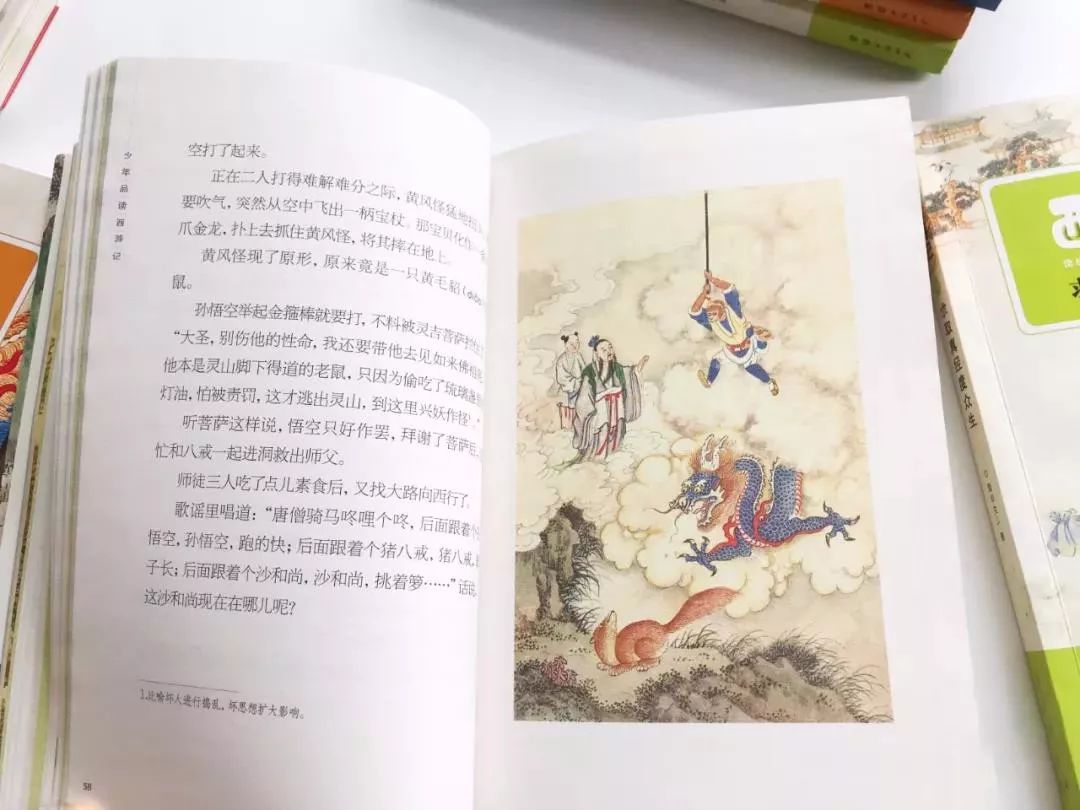 少年品读西游记
空打了起来。
正在二人打得难解难分之际，黄风怪猛地
要吹气，突然从空中飞出一柄宝杖。那宝贝化作
爪金龙，扑上去抓住黄风怪，将其摔在地上。
黄风怪现了原形，原来竟是一只黄毛貂（
鼠。
孙悟空举起金箍棒就要打，不料被灵吉菩萨
“大圣，别伤他的性命，我还要带他去见如来佛祖
他本是灵山脚下得道的老鼠，只因为偷吃了琉璃盏
灯油，怕被责罚，这才逃出灵山，到这里兴妖作怪¹。”
听菩萨这样说，悟空只好作罢，拜谢了菩萨后，
忙和八戒一起进洞救出师父。
师徒三人吃了点儿素食后，又找大路向西行了。
歌谣里唱道：“唐僧骑马咚哩个咚，后面跟着个
悟空，孙悟空，跑的快；后面跟着个猪八戒，猪八戒，
子长；后面跟着个沙和尚，沙和尚，挑着箩……”话说，
这沙和尚现在在哪儿呢？
1.比喻坏人进行捣乱，坏思想扩大影响。
58
求取真经度众生